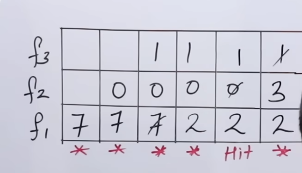 f3 1 1 1 1
f2 0 0 0 0 3
f1 7 7 7 2 2 2
* * * * Hit *